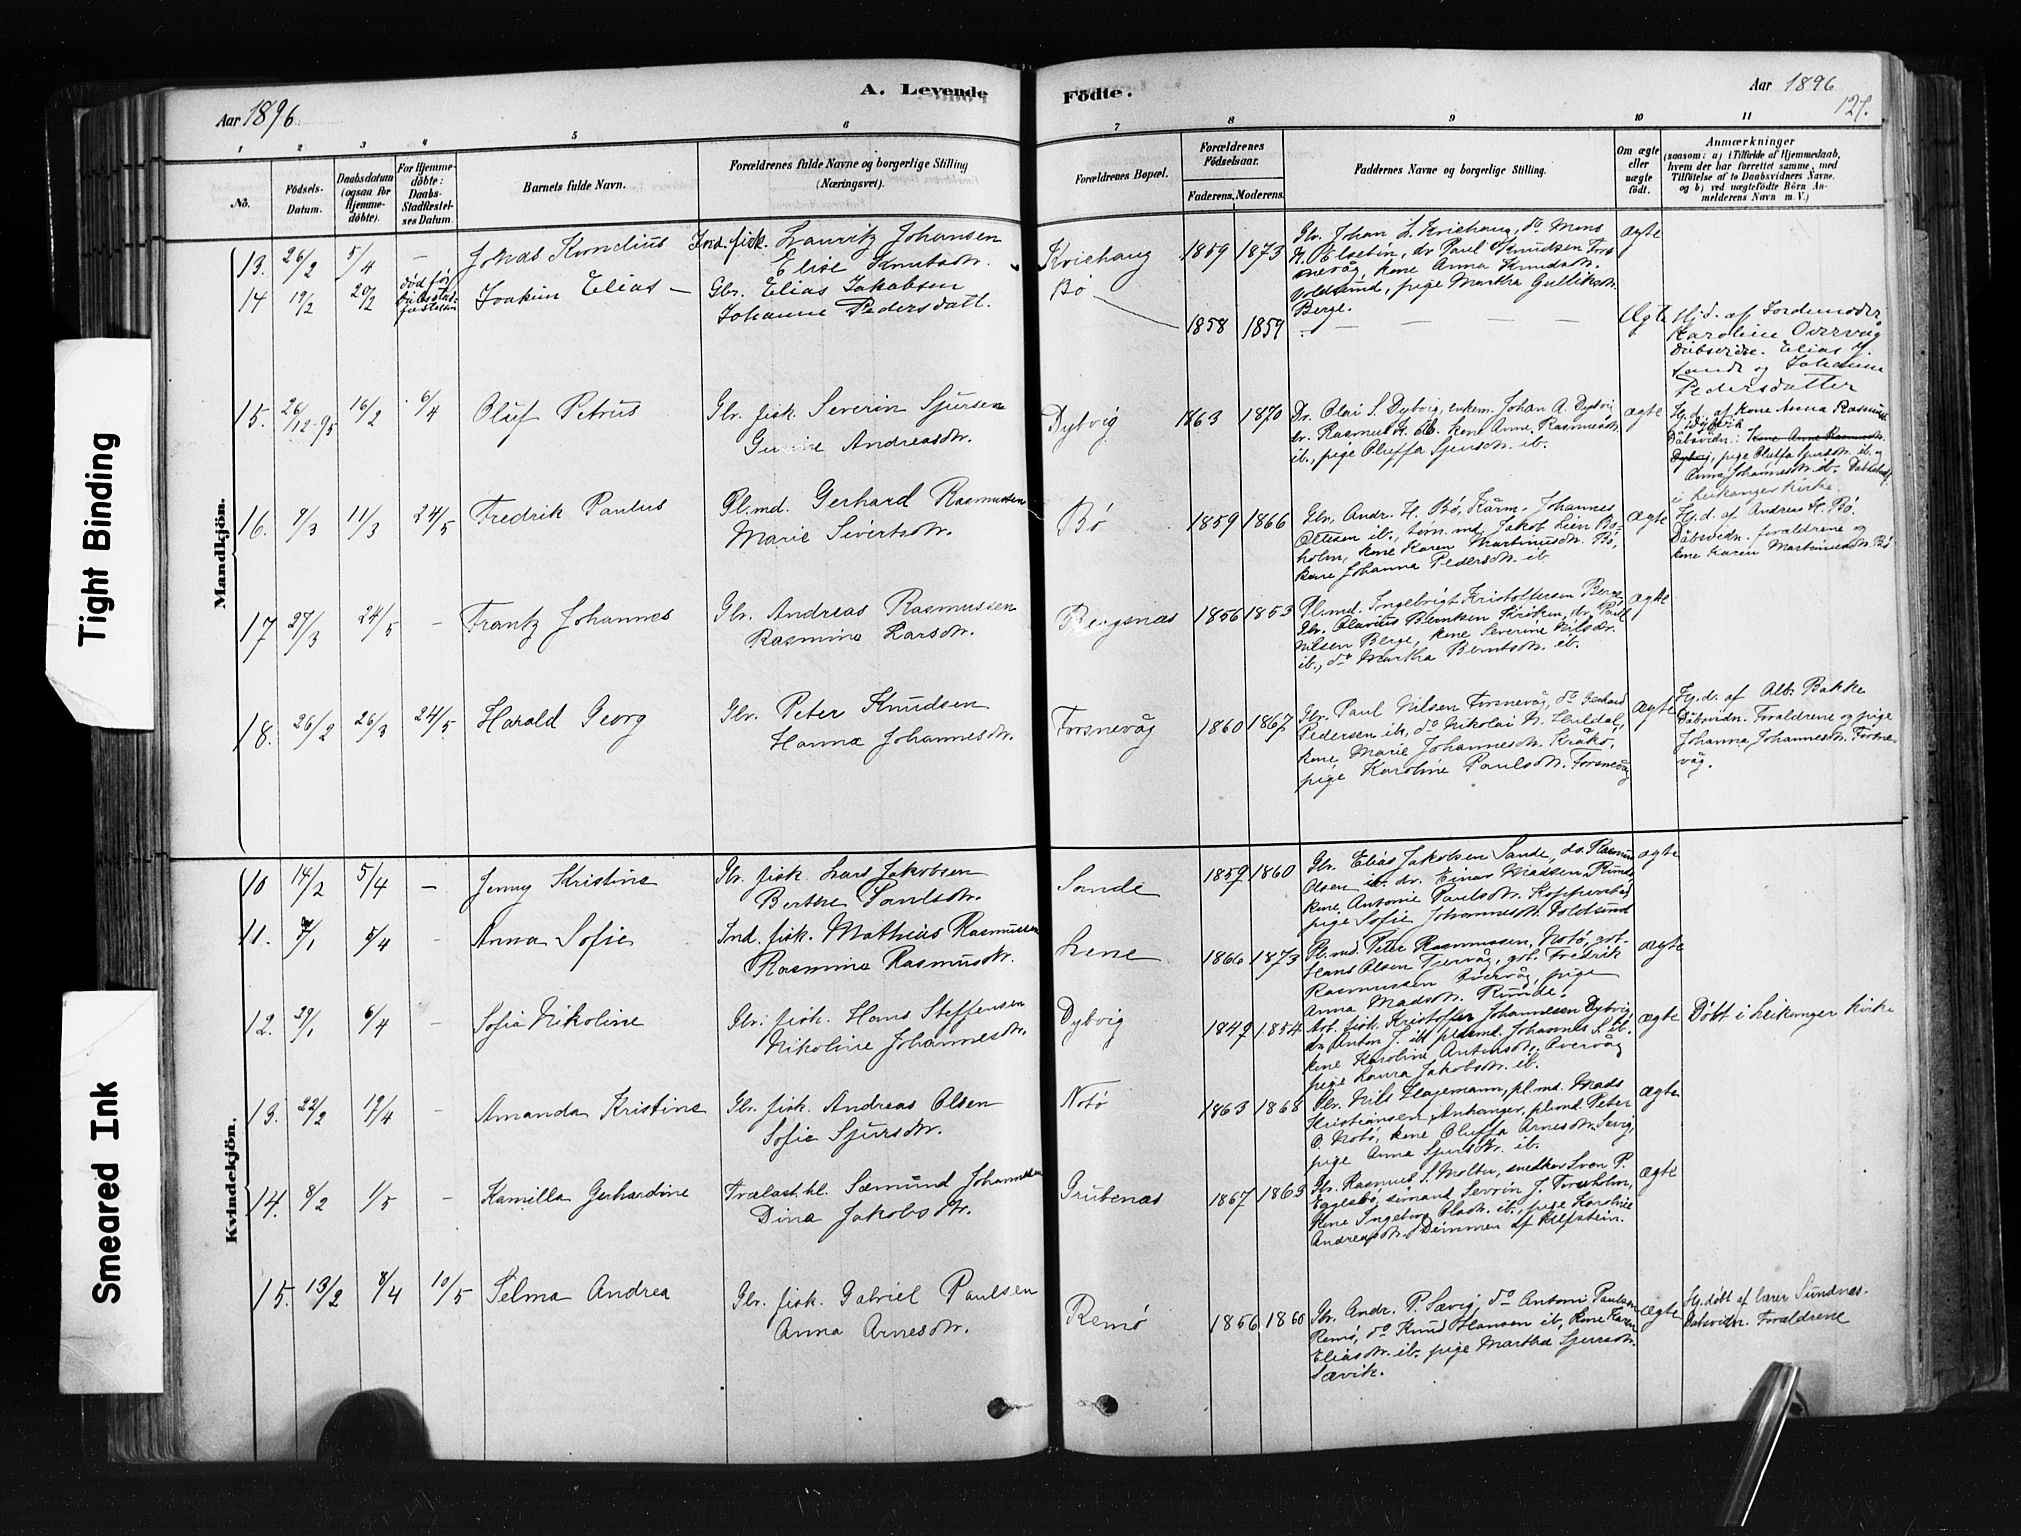 Tight Binding
Smeared Ink
Aar 1896
A. Levende
Fødte.
Aar 1896
127.
1 2 3 4 5 6 7 8 9 10 11
No.
Fødsels-
Datum.
Daabsdatum
(ogsaa for
Hjemme-
døbte).
For Hjemme-
døbte:
Daabs-
Stadfæstel-
ses Datum.
Barnets fulde Navn.
Forældrenes fulde Navne og borgerlige Stilling
(Næringsvei).
Forældrenes Bopæl.
Forældrenes
Fødselsaar.
Faderens. Moderens.
Faddernes Navne og borgerlige Stilling.
Om ægte
eller
uægte
født.
Anmærkninger
(saasom: a) i Tilfælde af Hjemmedaab,
hvem der har forrettet samme, med
Tilføielse af to Daabsvidners Navne,
og b) ved uægtefødte Børn An-
melderens Navn m. V.)
Mandkjön.
13. 26/2 5/4 — Jonas Kornelius Ind. fisk. Lauritz Johansen
Elise Knutsdtr.
Kviehaug 1859 1873 Gbr. Johan L. Kviehaug, do Mons
K. Olsebøn, dr. Paul Knudsen Fors
nevåg, kone Anna Knudsdtr.
Voldsund, pige Martha Gulliksdtr.
Berge.
ægte
14 19/2 20/2 død før
dåbsstad-
fæstelsen
Joakim Elias — Gbr. Elias Jakobsen
Johanne Pedersdatt.
Bø 1858 1859 — — — — — Ægte
Hj.d. af Jordemoder
Karoline Overvåg
Dåbsvidn. Elias J.
Sande og Johanne
Pedersdatter
15. 26/12-95 16/2 6/4 Oluf Petrus Gbr. fisk. Severin Sjursen
Andreasdtr.
Dybvig 1863 1870 Dr. Olai S. Dybvig, enkem. Johan A. Dybvig
dr. Rasmus K. ib. kone Anne Rasmusdtr
ib., pige Oluffa Sjursdtr. ib.
ægte
Hj.d. af kone Anna Rasmusd
Dybvik
Dåbsvidn: Kone Anne Rasmusdtr.
Dybvig, pige Olufa Sjursdtr. ib. og
Anna Johannesdtr. ib.
i Leikanger kirke.
16. 9/3 11/3 24/5 Fredrik Paulus Pl.md. Gerhard Rasmussen
Marie Sivertsdtr.
Bø 1859 1866 Gbr. Andr. H. Bø, Kårm. Johannes
Ottesen ib., tørn. md. Jakob Lien Bø-
holm, kone Karen Martinusdtr. Bø,
kone Johanna Pedersdtr. ib.
ægte
Hj.d. af Andreas H. Bø.
Dåbsvidn. foraldrene og
kone Karen Martinusdtr. Bø
17. 27/3 24/5 — Frantz Johannes Gbr. Andreas Rasmussen
Rasmine Larsdtr.
Bergsnæs 1856 1853 Pl.md. Ingebrigt Kristoffersen Berge
Gbr. Olavius Berntsen Kviken, dr. Paul
Nilsen Berge, kone Severine Nilsdtr.
ib., do Martha Berntsdtr. ib.
ægte
18. 26/2 26/3 24/5 Harald Georg Gbr. Peter Knudsen
Hanna Johannesdtr.
Forsnevåg 1860 1867 Gbr. Paul Nilsen Forsnevåg, do Gerhard
Pedersen ib, do Nikolai N. Huldal,
kone Marie Johannesdtr. Kråkø,
pige Karoline Paulsdtr. Forsnevåg
ægte
Hj.d. af Alb. Bakke
Dåbsvidn. Foraldrene og pige
Johanna Johannesdtr. Forsne-
våg.
Kvindekjön.
10 14/2 5/4 — Jenny Kristine Gbr. fisk. Lars Jakobsen
Berthe Paulsdtr.
Sande 1859 1860 Gbr. Elias Jakobsen Sande, do. Rasmus
Olsen ib. dr. Einar Madsen Runde
kone Antonie Paulsdtr. Koppenstad
pige Sofie Johannesdtr. Voldsund
ægte
11. /1 5/4 — Anna Sofie Ind. fisk. Mathias Rasmussen
Rasmine Rasmusdtr.
Lene 1866 1873 Pl.md. Peter Rasmussen, Notø, gbr.
Hans Olsen Tjervåg, gbr. Fredrik
Rasmussen Overvåg, pige
Anna Madsdtr. Runde.
ægte
12. 29/1 6/4 — Sofia Nikoline Gbr. fisk. Hans Steffensen
Nikoline Johannesdtr.
Dybvig 1849 1854 Gbr. fisk. Kristoffer Johannesen Dybvig,
dr. Anton J. ib. pladsmd. Johannes S. ib.
kone Karoline Antonsdtr. Overvåg
pige Laura Jakobsdtr. ib.
ægte
Døbt i Leikanger kirke
13. 22/2 19/4 — Amanda Kristine Gbr. fisk. Andreas Olsen
Sofie Sjursdtr.
Notø 1863 1868 Gbr. Nils Hagemann, pl.md. Mads
Kristiansen Anhanger, pl.md. Peter
O. Notø, kone Oluffa Arnesdtr. Sævig,
pige Anna Sjursdtr. ib.
ægte
14. 8/2 1/5 — Kamilla Gerhardine Trælast.hl. Sæmund Johannessen
Dina Jakobsdtr.
Grubenæs 1867 1869 Gbr. Rasmus S. Moltu, snedker Sven P.
Eggesbø, sømand Sevrin J. Torvholm,
Kone Ingeborg Olsdtr. ib., pige Karoline
Andreasdtr. Dimmen af Ulfstein.
ægte
15. 13/2 8/4 10/5 Selma Andrea Gbr. fisk. Gabriel Paulsen
Anna Arnesdtr.
Remø 1856 1860 Gbr. Andr. P. Sævig, do Anton Paulsen
Remø, do Knud Hansen ib, kone Karen
Eliasdtr. ib. pige Martha Sjursdtr.
Sævik.
ægte
Hj. døbt af lærer Sundnes.
Dåbsvidn. Forældrene